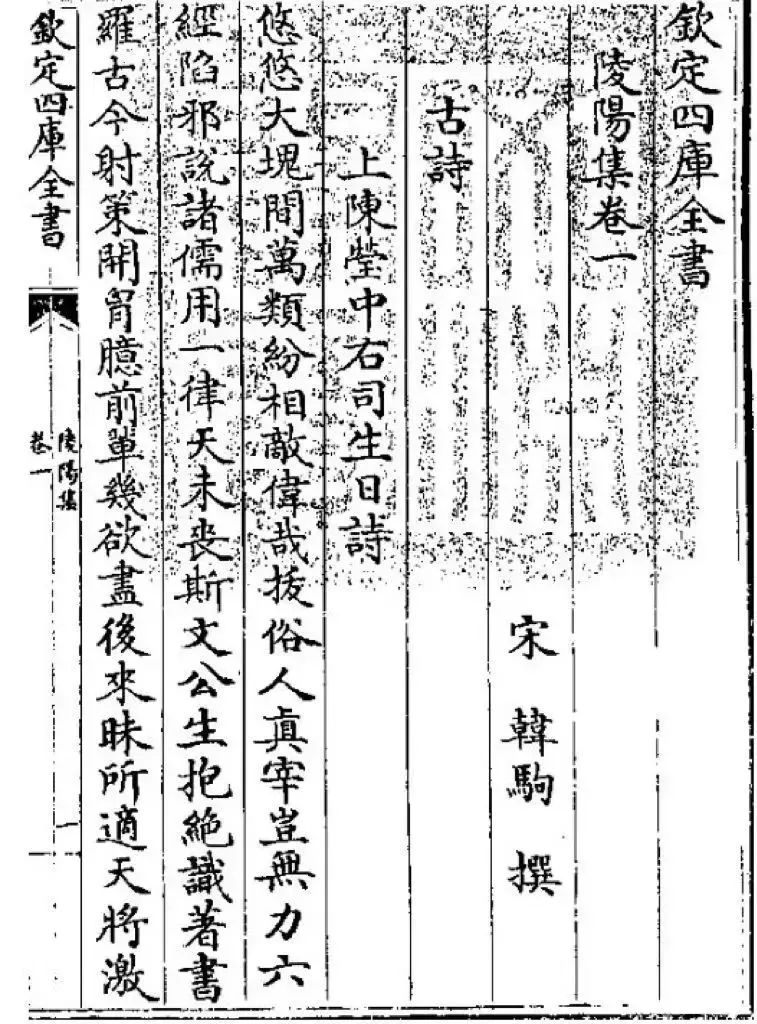 欽定四庫全書
陵陽集卷一
宋 韓駒 撰
古詩
上陳瑩中右司生日詩
悠悠大塊間萬類紛相敵偉哉拔俗人真宰豈無力六
經陷邪說諸儒用一律天未喪斯文公生抱絕識著書
羅古今射策開胷臆前軰幾欲盡後來昧所適天將激
欽定四庫全書
陵陽集
卷一
一